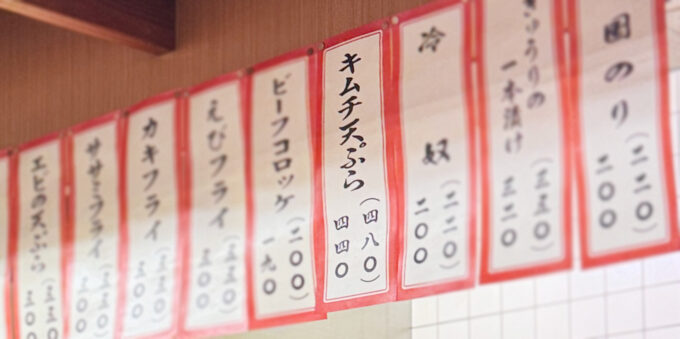 のり
(二二〇)
二〇〇
きゅうりの
一本漬け
(三五〇)
三二〇
冷奴
(二二〇)
二〇〇
キムチ天ぷら
(四八〇)
四四〇
ビーフコロッケ
(二〇〇)
一九〇
えびフライ
(三三〇)
三〇〇
カキフライ
(三三〇)
三〇〇
ササミフライ
(三三〇)
三〇〇
エビの天ぷら
(三三〇)
三〇〇